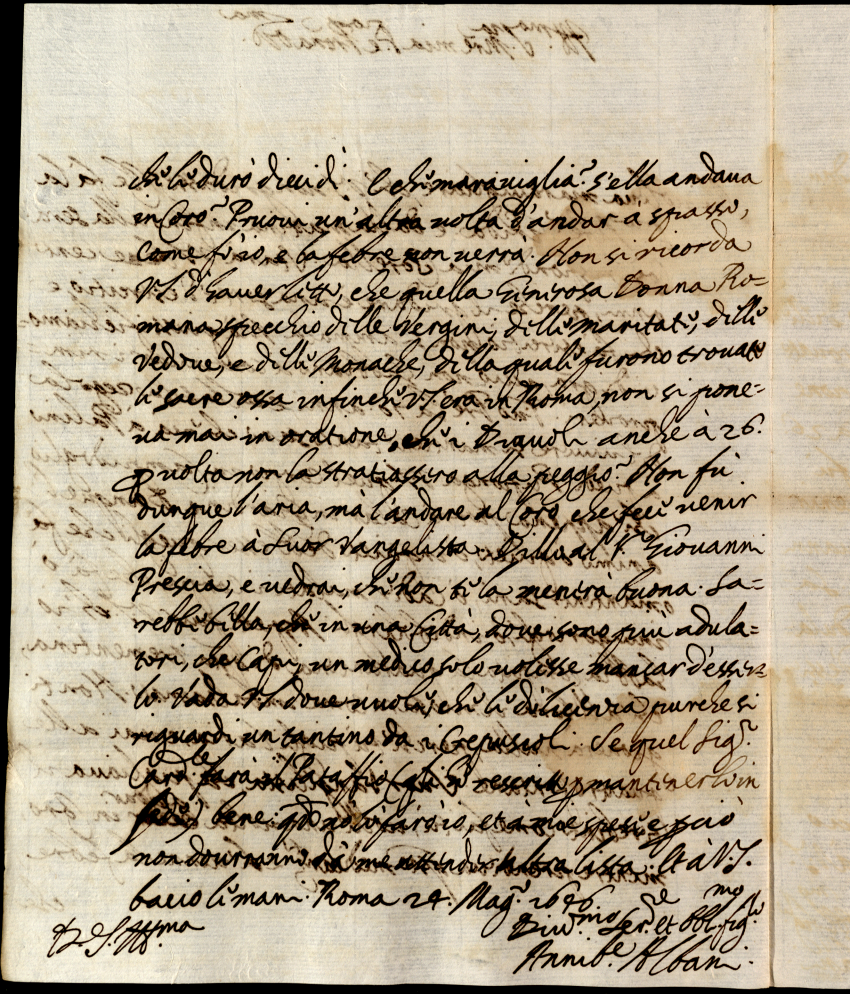 che le durò dieci dì. E che maraviglia? s'ella andaua
in Coro? Pruoui un'altra uolta d'andar à spasso,
come fò io, e la febre non uerrà. Non si ricorda
V.S. d'hauer letto, che quella Generosa Donna Ro-
mana specchio delle Vergini, delle maritate, delle
Vedoue, e delle Monache, della quale furono trouate
le sacre ossa infinche V.S. era in Roma, non si pone-
ua mai in oratione, che i Diauoli anche à 26.
p uolta non la stratiassero alla peggio? Non fù
dunque l'aria, mà l'andare al Coro che fece uenir
la febre à Suor Vangelista. Dillo al P. Giouanni
Prescia, e uedrai, che non te la menerà buona. Sa-
rebbe bella, che in una Città, doue sono più adula-
tori, che Capi, un medico solo uolesse mancar d'esser-
lo. Vada V.S. doue uuole, che le dò licenza purche si
riguardi un tantino da i Crepuscoli. Se quel Sig.r
Card.le farà il Pataffio p mantenerlo in
bene: qdo nò lo farò io, et à mie spese, e p ciò
non douranno da me altra lista. Et à V.S.
bacio le mani. Roma 24. Mag.o 1646.
D. V.S. Ill.ma
Diu.mo Ser.re et Obl.mo fig.o
Annib.e Albani.